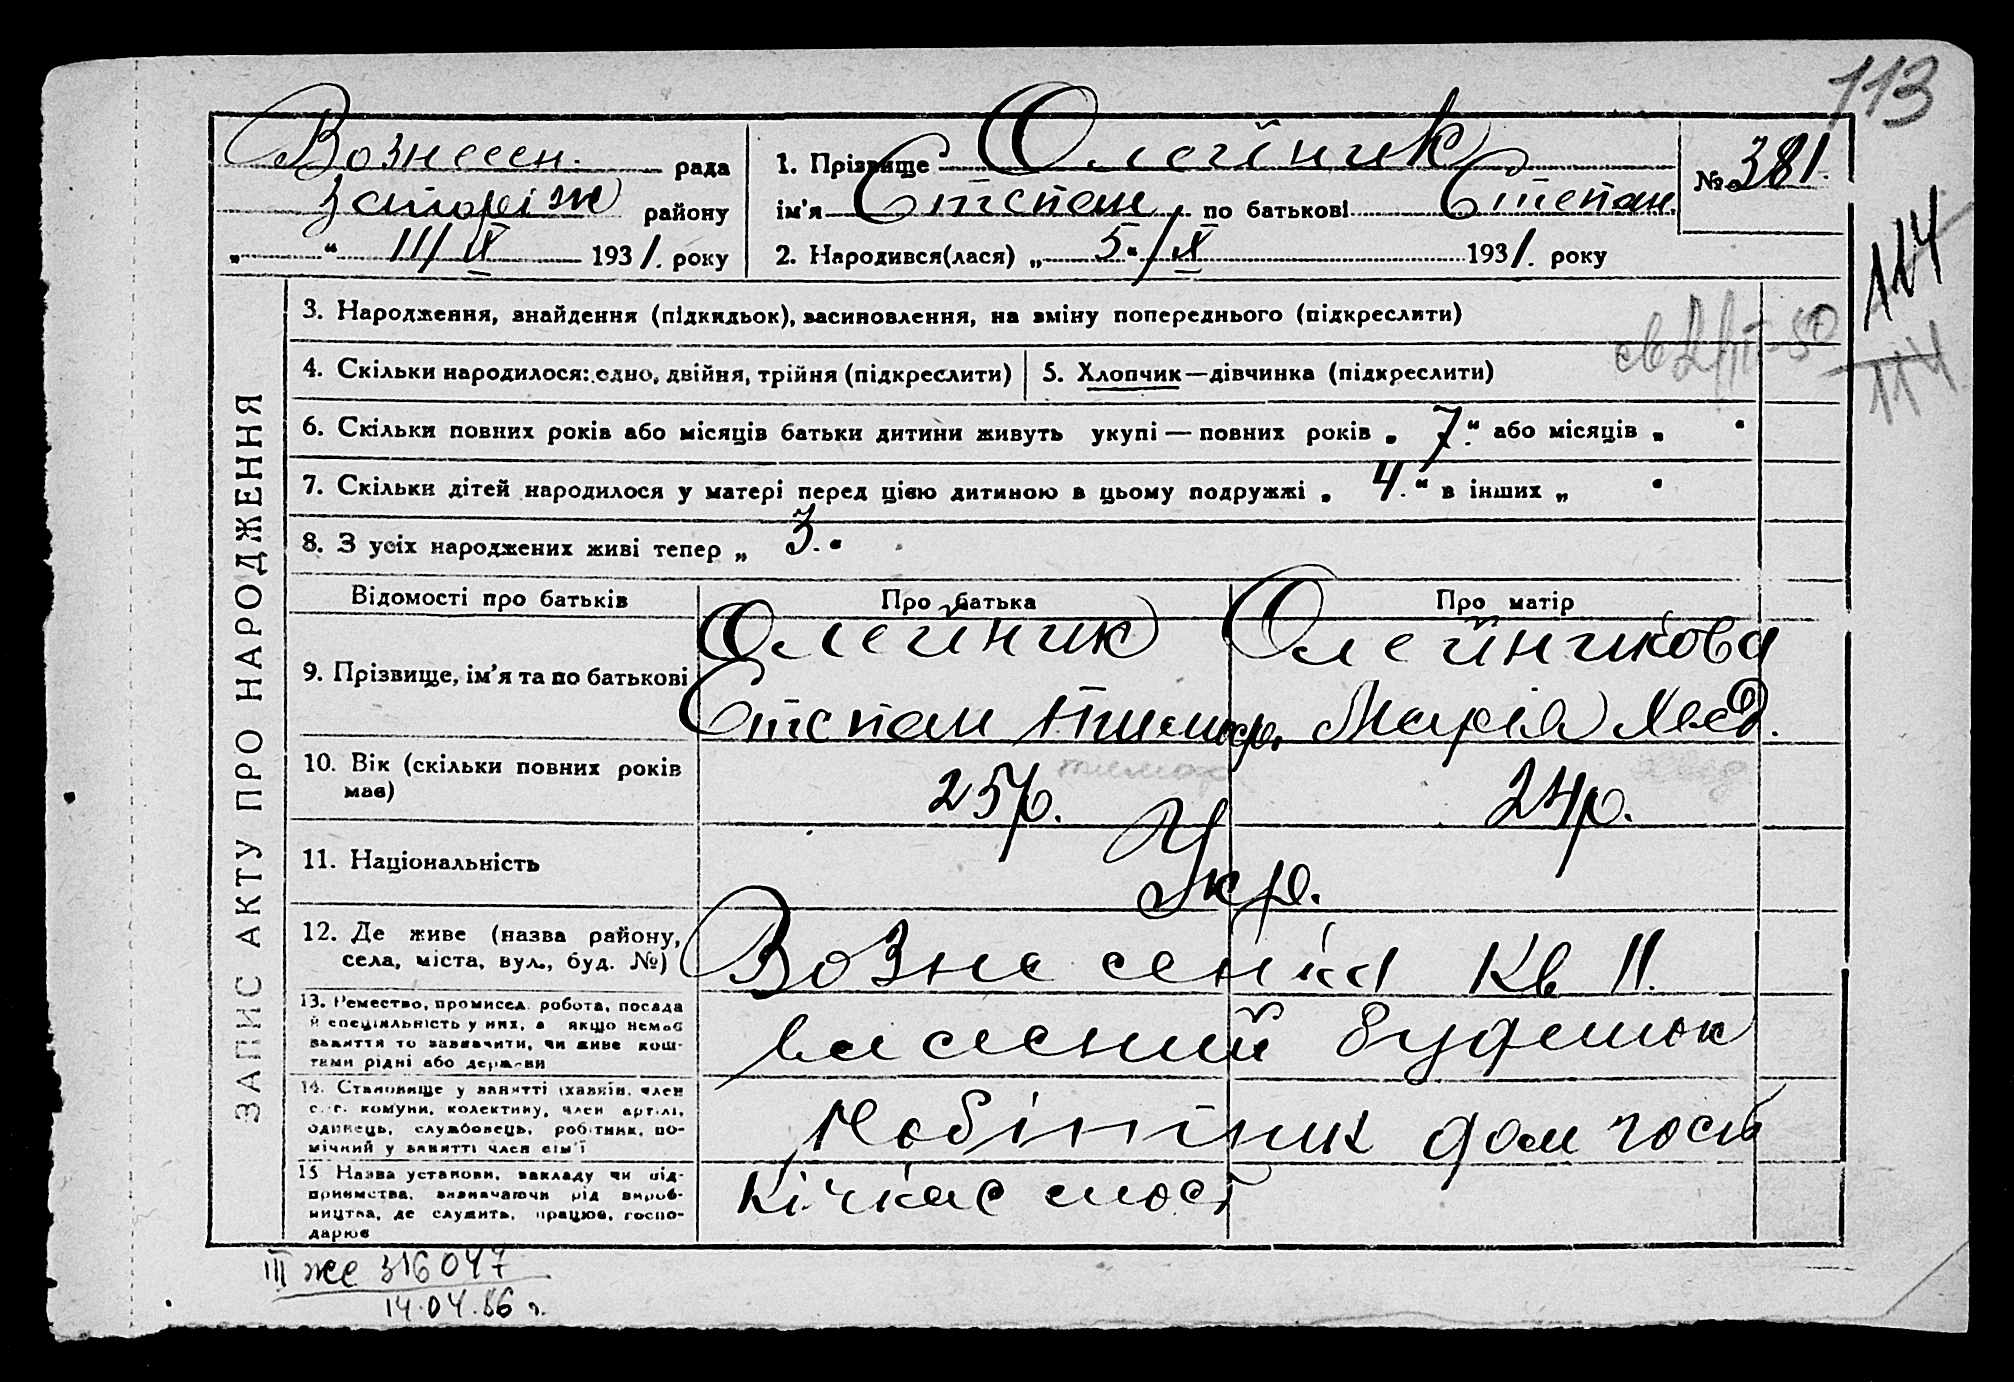 113
Вознесен. рада
Запоріж району
„ “ 11/IX 1931. року
1. Прізвище Олейник
ім'я Степан по батькові Степан.
2. Народився(лася) „ 5 “/IX 1931. року
№ 381.
114
ЗАПИС АКТУ ПРО НАРОДЖЕННЯ
3. Народження, знайдення (підкидьок), васиновлення, на зміну попереднього (підкреслити)
114
4. Скільки народилося: одно, двійня, трійня (підкреслити)
5. Хлопчик—дівчинка (підкреслити)
6. Скільки повних років або місяців батьки дитини живуть укупі — повних років „ 7. “ або місяців „ “
7. Скільки дітей народилося у матері перед цією дитиною в цьому подружжі „ 4. “ в інших „ “
8. З усіх народжених живі тепер „ 3. “
Відомості про батьків
Про батька
Про матір
9. Прізвище, ім'я та по батькові
Олейник
Степан Тимоф.
Олейникова
Марія Хвед.
10. Вік (скільки повних років
має)
тимоф
25р.
хвед
24р.
11. Національність
Укр.
12. Де живе (назва району,
села, міста, вул., буд. №)
Вознесенка Кв 11.
13. Ремество, промисел. робота, посада
й спеціяльність у них, а якщо немає
заняття то зазначити, чи живе кош-
тами рідні або держави
власний будинок
14. Становище у занятті (хазяїн, член
с.-г. комуни, колективу, член артілі,
одинець, службовець, робітник, по-
мічний у занятті член сім'ї
Робітник дом госп
15 Назва установи, закладу чи під-
приємства, визначаючи рід вироб-
ництва, де служить, працює, госпо-
дарює
Кічкас мост
III же 316047
14.04.86 г.